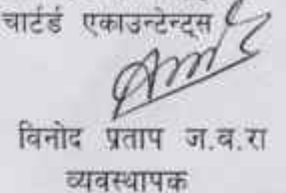 चार्टर्ड एकाउन्टेन्ट्स
विनोद प्रताप ज.व.रा
व्यवस्थापक